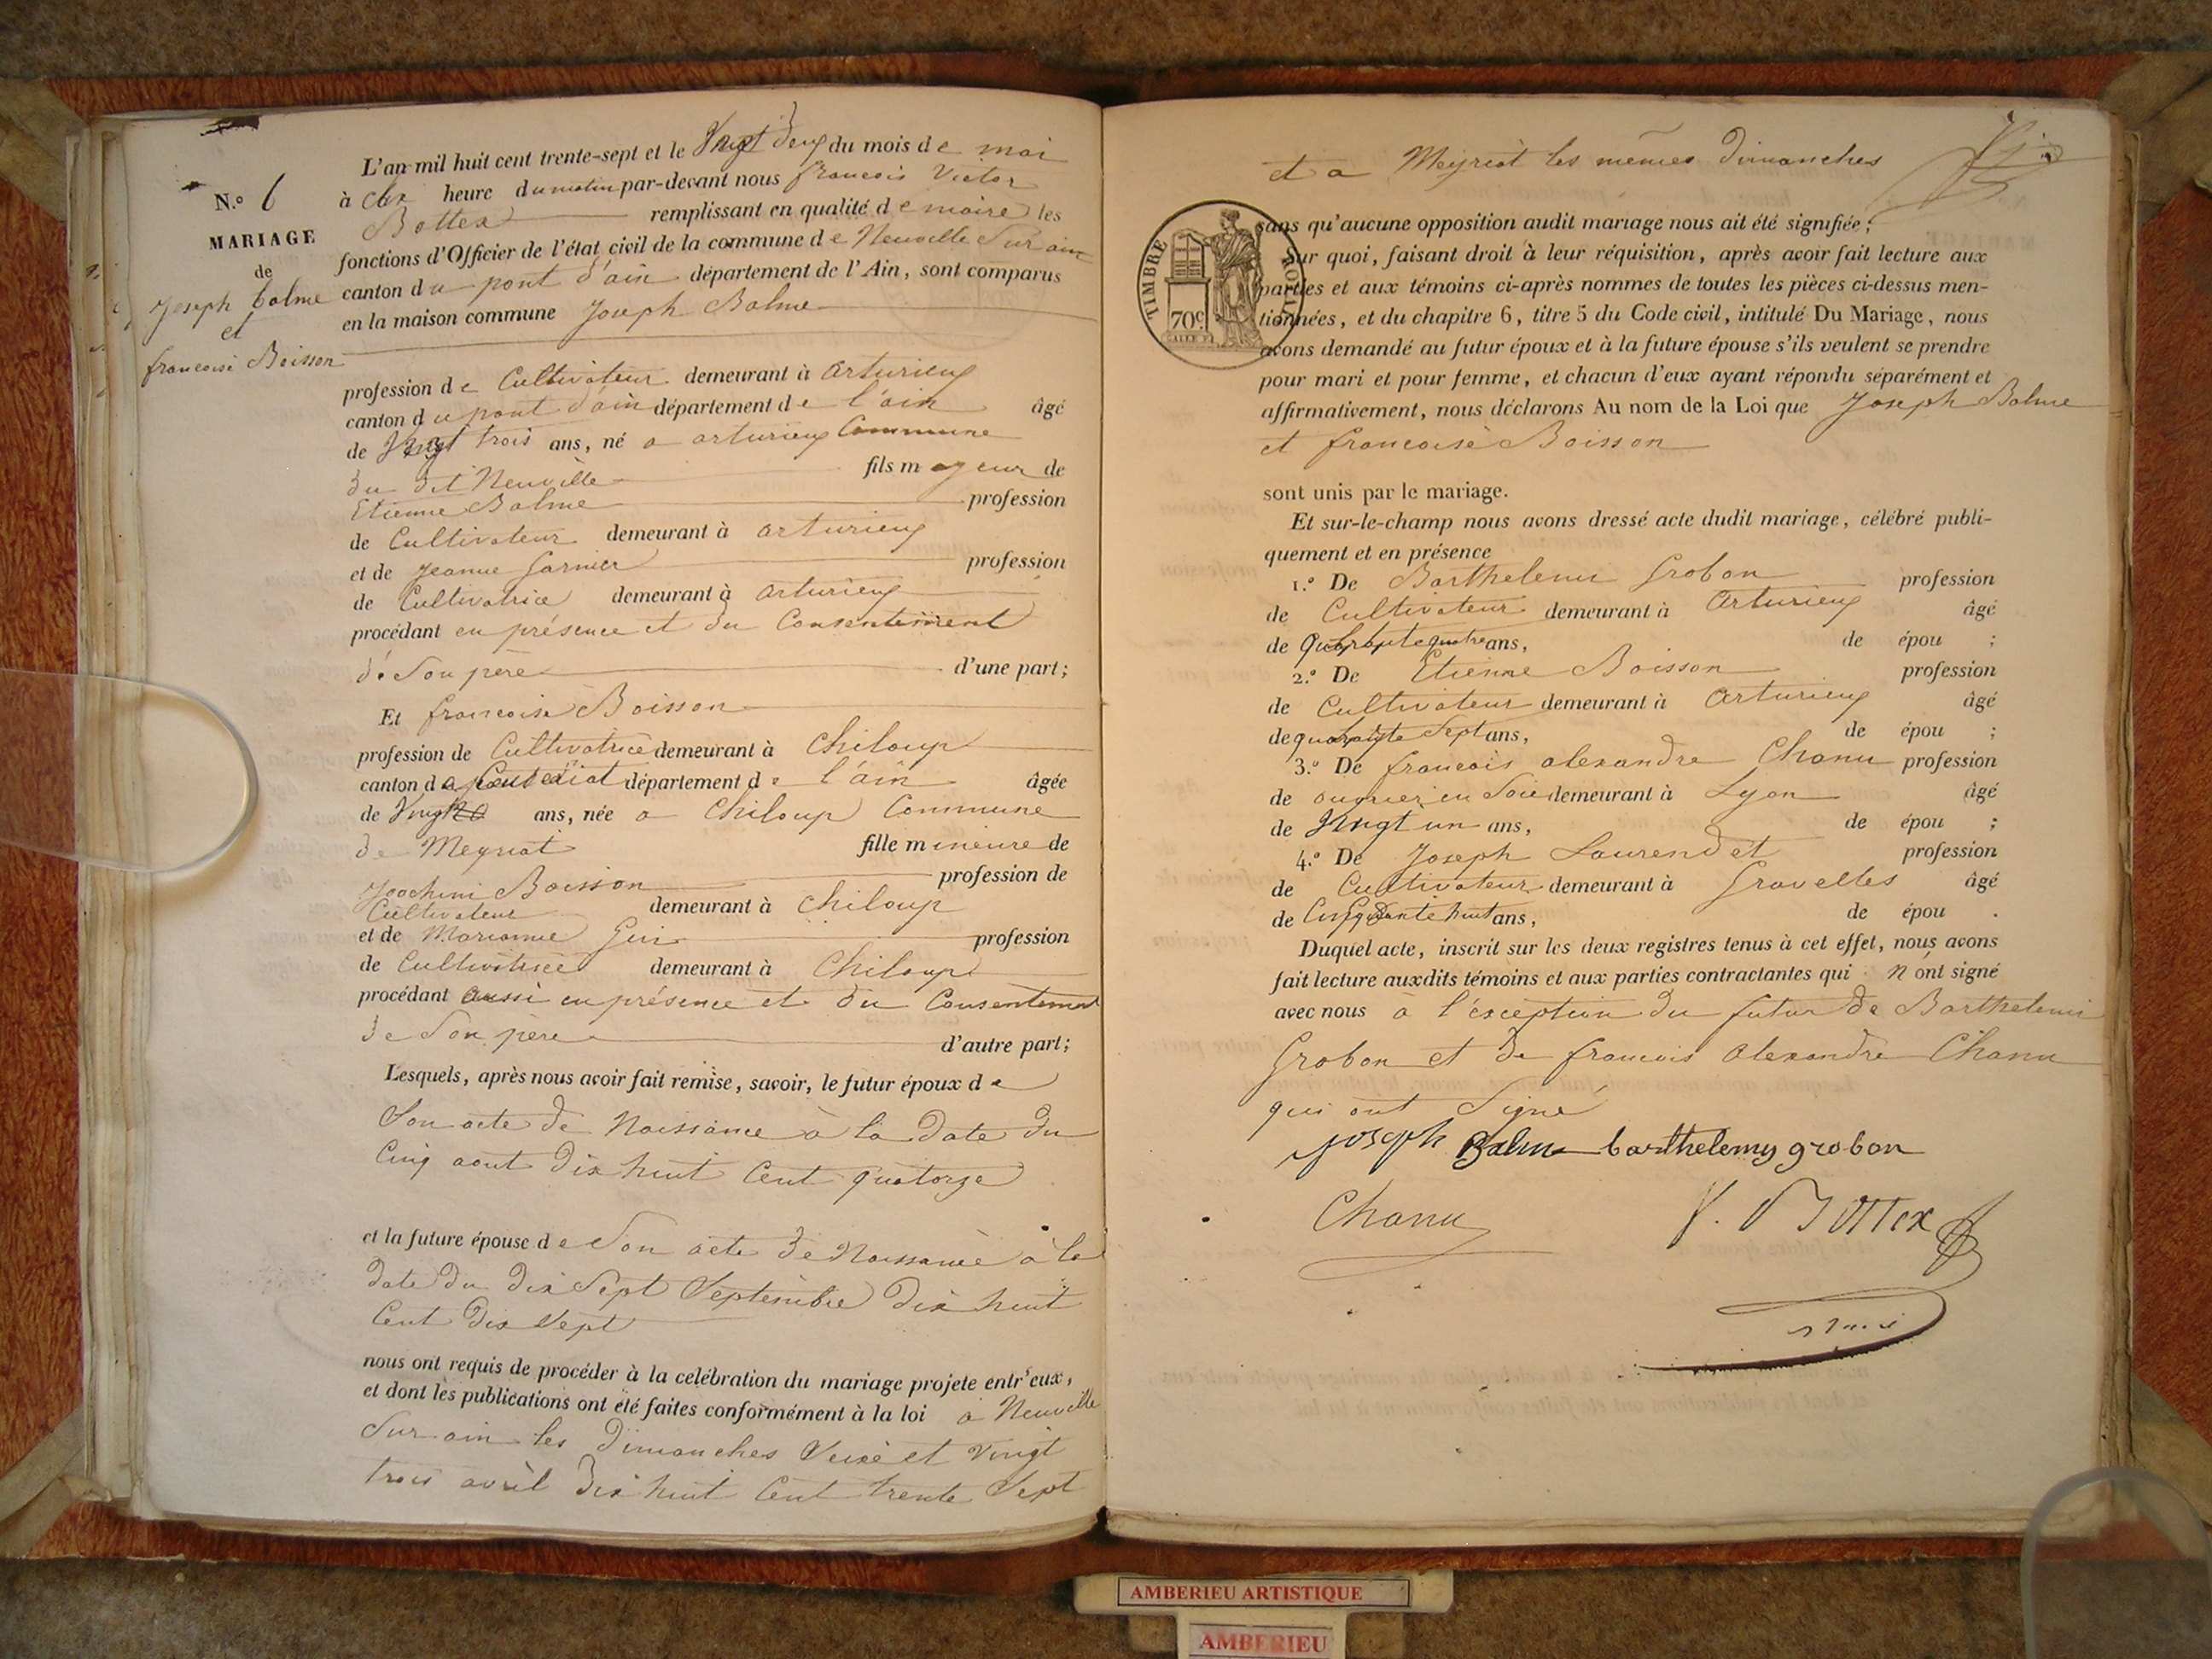 L'an mil huit cent trente-sept et le Vingt deux du mois de mai
à heure du matin par-devant nous francois Victor
Bottex remplissant en qualité de maire les
fonctions d'Officier de l'état civil de la commune de Neuville Sur ain
canton du pont d'ain département de l'Ain, sont comparus
en la maison commune Joseph Balme
N.o 6
MARIAGE
de
Joseph balme
et
francoise Boisson
profession de Cultivateur demeurant à arturieux
canton du pont d'ain département de l'ain âgé
de Vingt trois ans, né a arturieux Commune
du dit Neuville fils mageur de
Etienne Balme profession
de Cultivateur demeurant à arturieux
et de Jeanne Garnier profession
de Cultivatrice demeurant à arturieux
procédant en présence et du Consentement
de Son père d'une part;
Et francoise Boisson
profession de Cultivatrice demeurant à Chiloup
canton de département de l'ain âgée
de ans, née a Chiloup Commune
de Meyriat fille mineure de
Joachim Boisson profession de
Cultivateur demeurant à Chiloup
et de Marianne profession
de Cultivatrice demeurant à Chiloup
procédant aussi en présence et du Consentement
de Son père d'autre part;
Lesquels, après nous avoir fait remise, savoir, le futur époux de
Son acte de Naissance à la Date du
Cinq aout dix huit Cent quatorze
et la future épouse de Son acte de Naissance à la
date du dix Sept Septembre dix huit
Cent dix Sept
nous ont requis de procéder à la celébration du mariage projete entr'eux,
et dont les publications ont été faites conformément à la loi a Neuville
Sur ain les Dimanches Seize et Vingt
trois avril dix huit Cent trente Sept
et a Meyriat les mêmes Dimanches
TIMBRE ROYAL
70c
sans qu'aucune opposition audit mariage nous ait été signifiée;
Sur quoi, faisant droit à leur réquisition, après avoir fait lecture aux
parties et aux témoins ci-après nommes de toutes les pièces ci-dessus men-
tionnées, et du chapitre 6, titre 5 du Code civil, intitulé Du Mariage, nous
avons demandé au futur époux et à la future épouse s'ils veulent se prendre
pour mari et pour femme, et chacun d'eux ayant répondu séparément et
affirmativement, nous déclarons Au nom de la Loi que Joseph Balme
et francoise Boisson
sont unis par le mariage.
Et sur-le-champ nous avons dressé acte dudit mariage, célébré publi-
quement et en présence
1.o De Barthelemi Grobon profession
de Cultivateur demeurant à Arturieux âgé
de quarante quatre ans, de épou ;
2.o De Etienne Boisson profession
de Cultivateur demeurant à Arturieux âgé
de quarante Sept ans, de épou ;
3.o De francois alexandre Chanu profession
de ouvrier en Soie demeurant à Lyon âgé
de Vingt un ans, de épou ;
4.o De Joseph Laurendet profession
de Cultivateur demeurant à Gravelles âgé
de Cinquante huit ans, de épou .
Duquel acte, inscrit sur les deux registres tenus à cet effet, nous avons
fait lecture auxdits témoins et aux parties contractantes qui n'ont signé
avec nous a l'exception du futur de Barthelemi
Grobon et de francois alexandre Chanu
qui ont Signé
joseph Balme barthelemy grobon
Chanu
V. Bottex
maire
AMBERIEU ARTISTIQUE
AMBERIEU